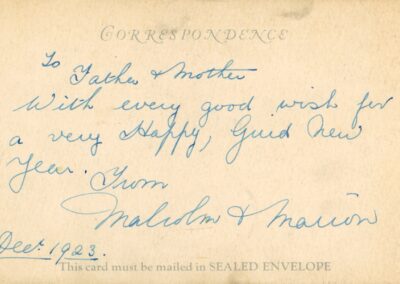 CORRESPONDENCE
To
Father & Mother
With every good wish for
a very Happy, Guid New
Year. From
Malcolm & Marion
Dec. 1923.
This card must be mailed in SEALED ENVELOPE